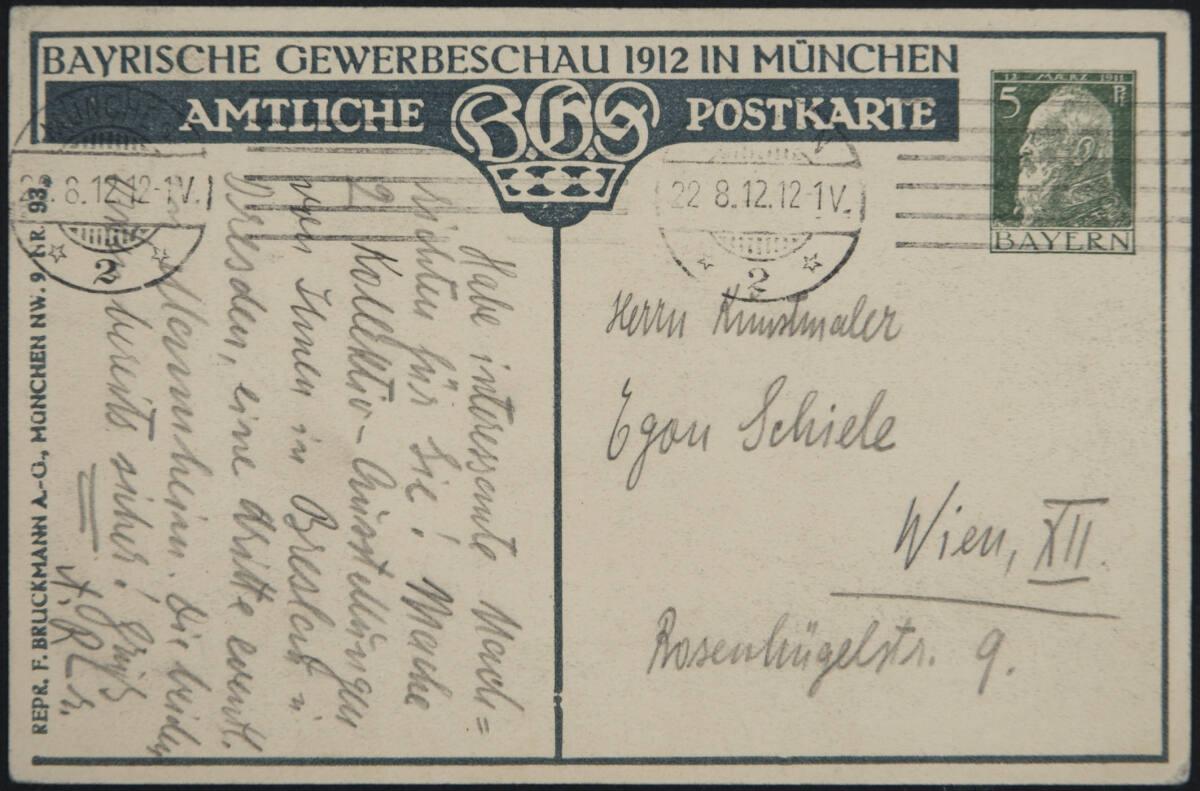 BAYRISCHE GEWERBESCHAU 1912 IN MÜNCHEN
AMTLICHE B.G.S POSTKARTE
12 MÆRZ 1911
5 Pf
BAYERN
MÜNCHEN
22. 8.12.12-1V.
2
22 8.12.12-1V.
2
Herrn Kunstmaler
Egon Schiele
Wien, XII.
Rosenhügelstr. 9.
Habe interessante Nach=
richten für Sie! Mache
2 Kollektiv-Ausstellungen
von Ihnen in Breslau &
Dresden, eine dritte eventl.
in Mannheim. Die beiden
bereits sicher! Gruß
REPR. F. BRUCKMANN A.-G., MÜNCHEN NW. 9. NR. 93.